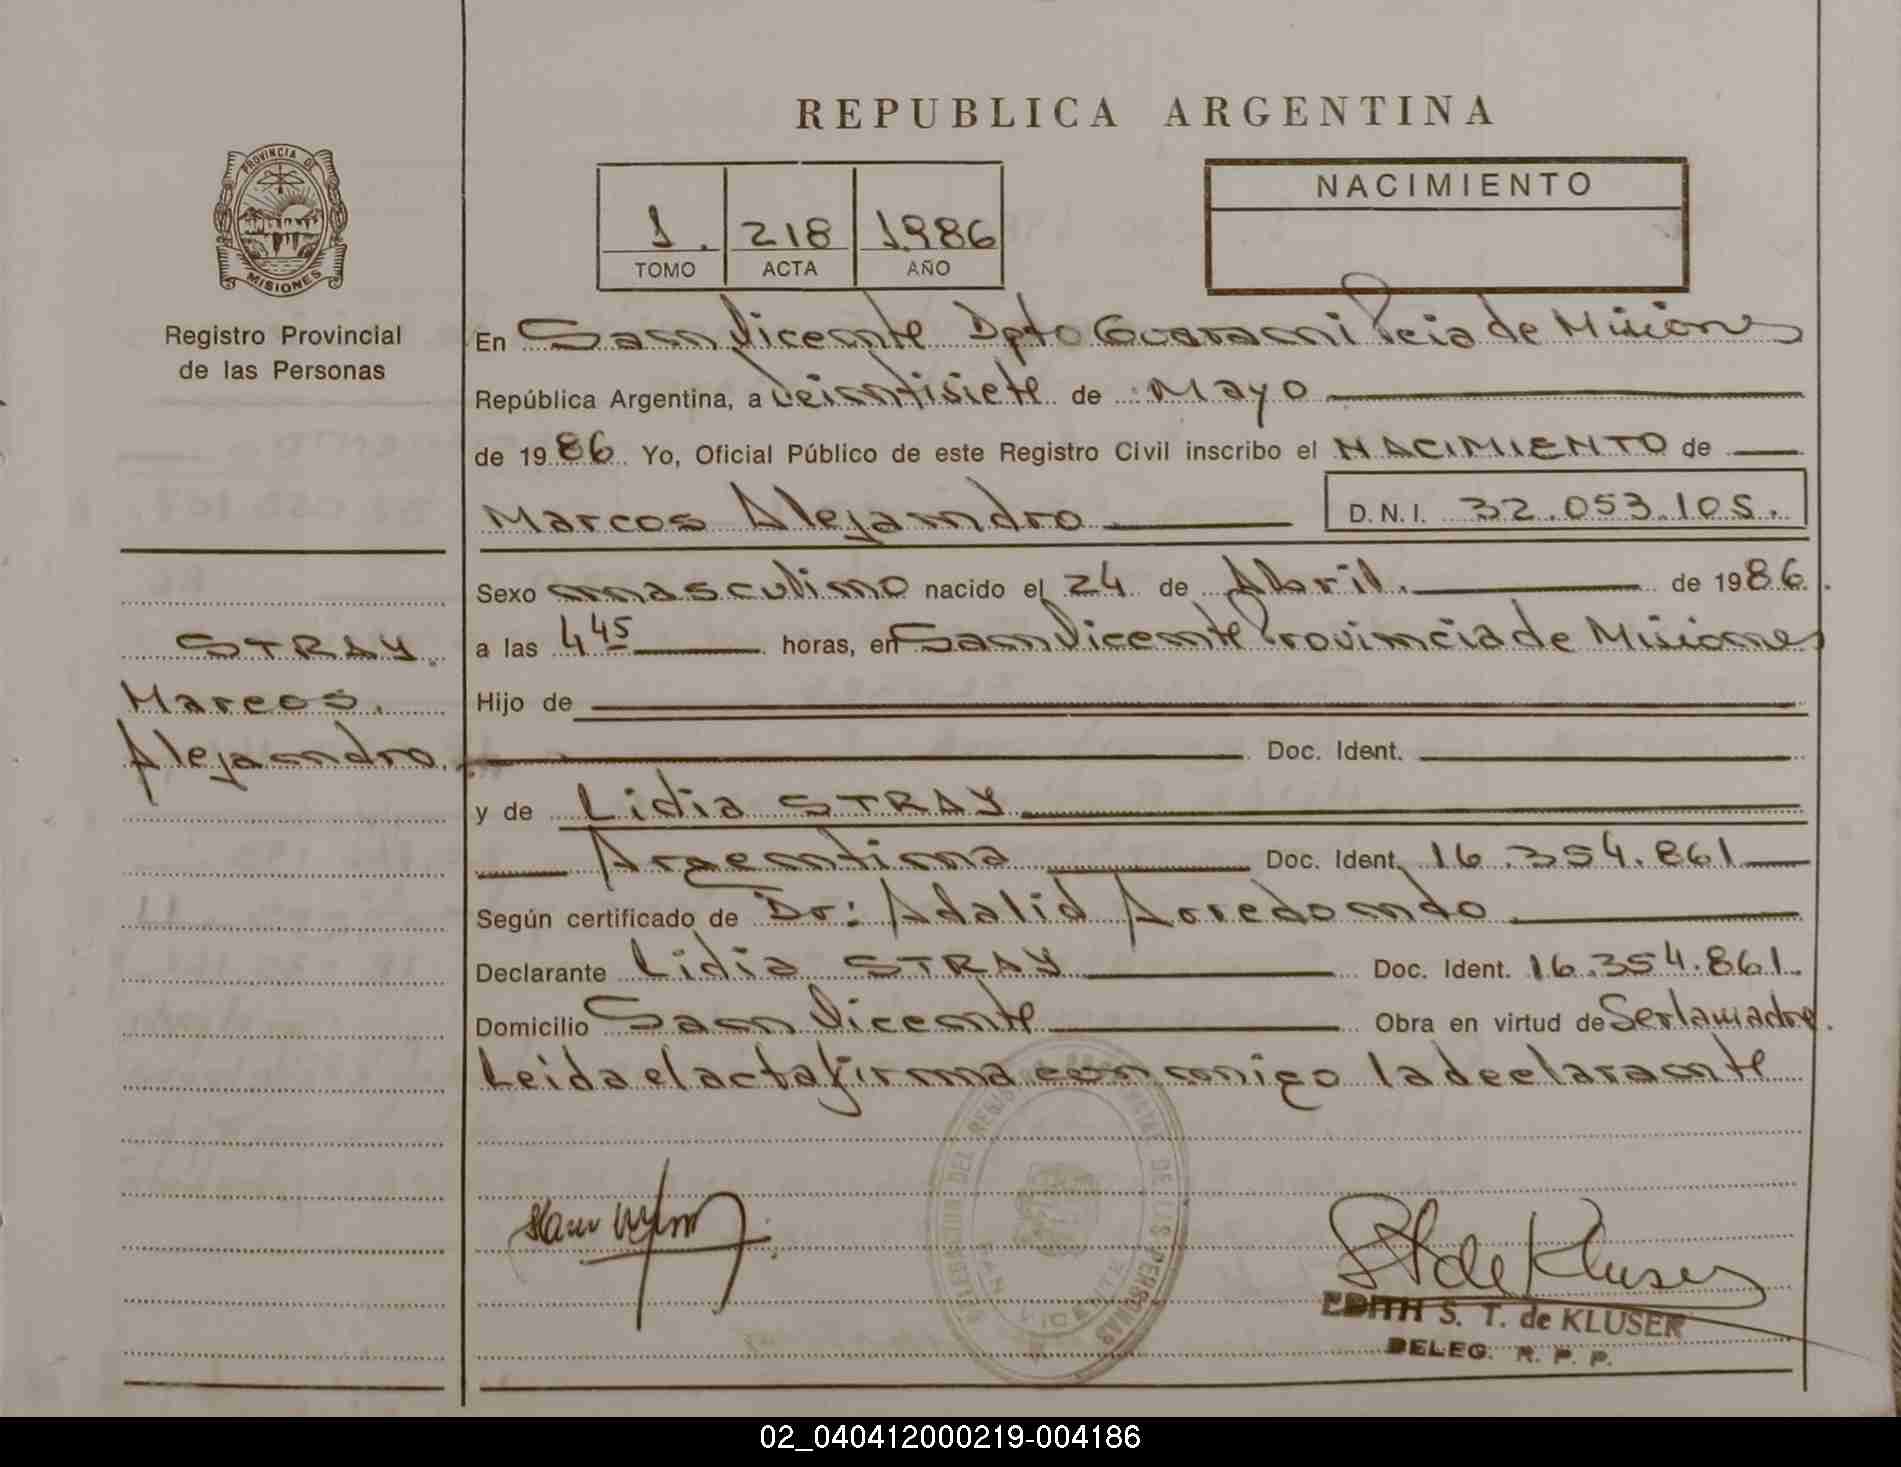 REPUBLICA ARGENTINA
PROVINCIA DE
MISIONES
Registro Provincial
de las Personas
1. 218 1986
TOMO ACTA AÑO
NACIMIENTO
En San Vicente Dpto Guarani Pcia de Misiones
República Argentina, a Veintisiete de Mayo
de 1986 Yo, Oficial Público de este Registro Civil inscribo el NACIMIENTO de
Marcos Alejandro D.N.I. 32.053.105.
Sexo masculino nacido el 24 de Abril. de 1986.
STRAY.
Marcos.
Alejandro.
a las 4 45 horas, en San Vicente Provincia de Misiones
Hijo de
Doc. Ident.
y de Lidia STRAY
Argentina Doc. Ident. 16.354.861
Según certificado de Dr: Adalid Arredondo
Declarante Lidia STRAY Doc. Ident. 16.354.861.
Domicilio San Vicente Obra en virtud de Ser la madre.
Leida el acta firma con migo la declarante
DELEGACION DEL REGISTRO DE LAS PERSONAS
SAN VICENTE
de Kluser
EDITH S. T. de KLUSER
DELEG. R. P. P.
02_040412000219-004186